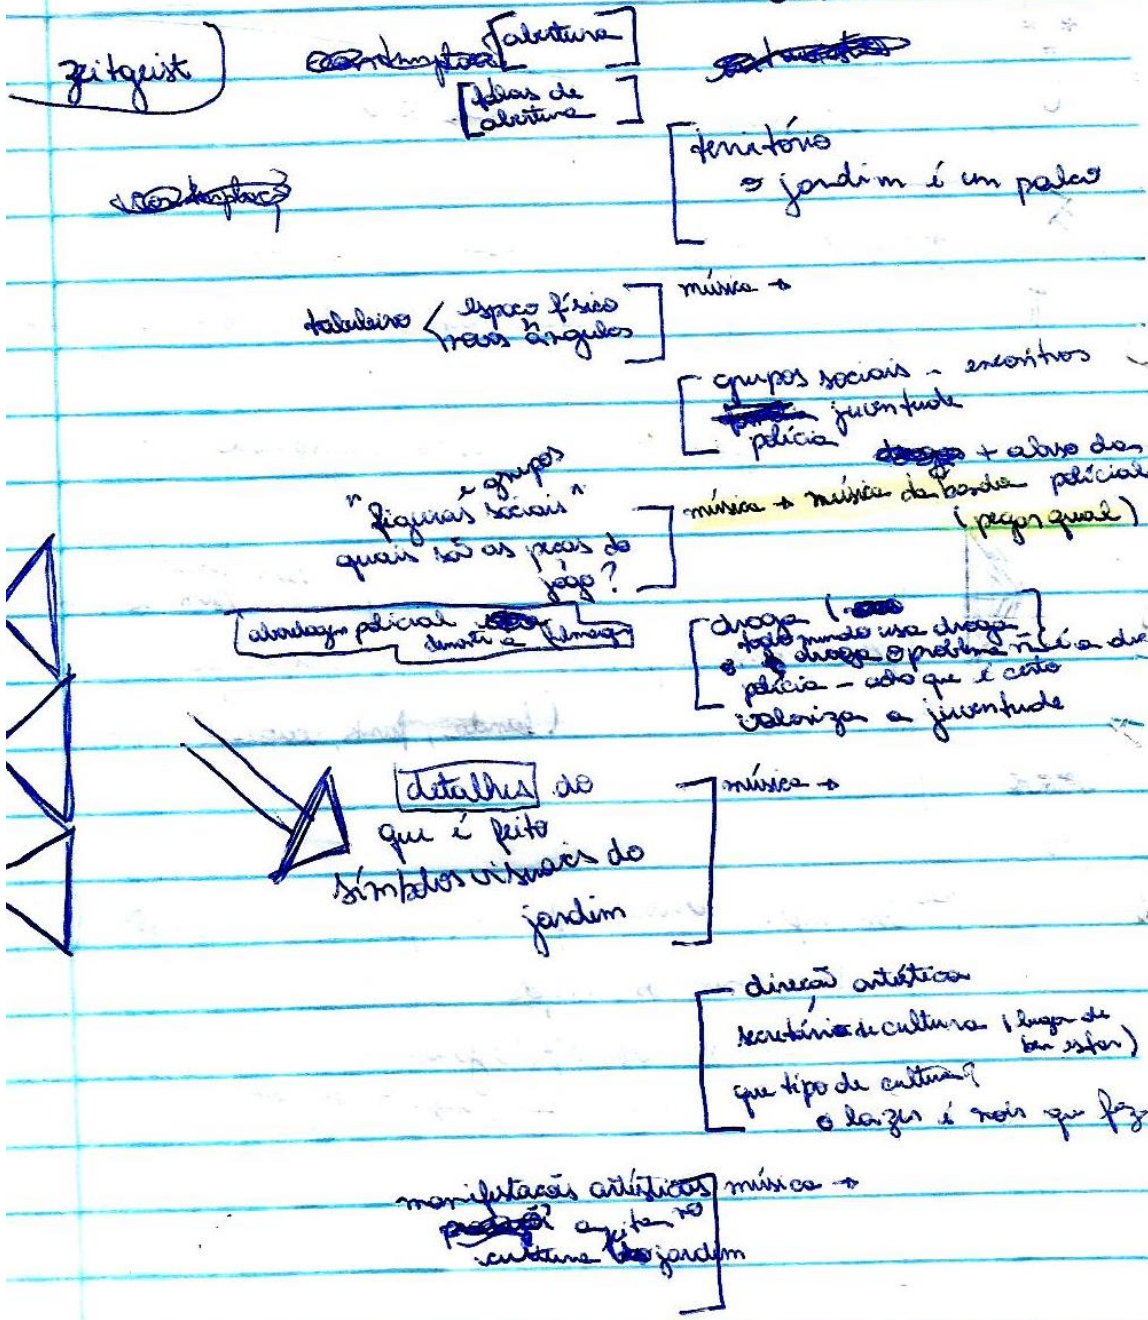 zeitgeist
[abertura]
[falas de
abertura]
território
o jardim é um palco
tabuleiro < espaço físico
novos ângulos
música →
grupos sociais - encontros
juventude
polícia
+ abuso das
e grupos
"figuras sociais"
quais são as peças do
jogo?
música → música da banda policial
(pegar qual)
abordagem policial
durante a filmagem
droga (
todo mundo usa droga
o droga o problema não é a dr
polícia - acho que é certo
valoriza a juventude
detalhes do
que é feito
símbolos visuais do
jardim
música →
direção artística
secretário de cultura (lugar de
bem estar)
que tipo de cultura?
o lazer é nois que faz
manifestações artísticas
cultura do jardim
música →